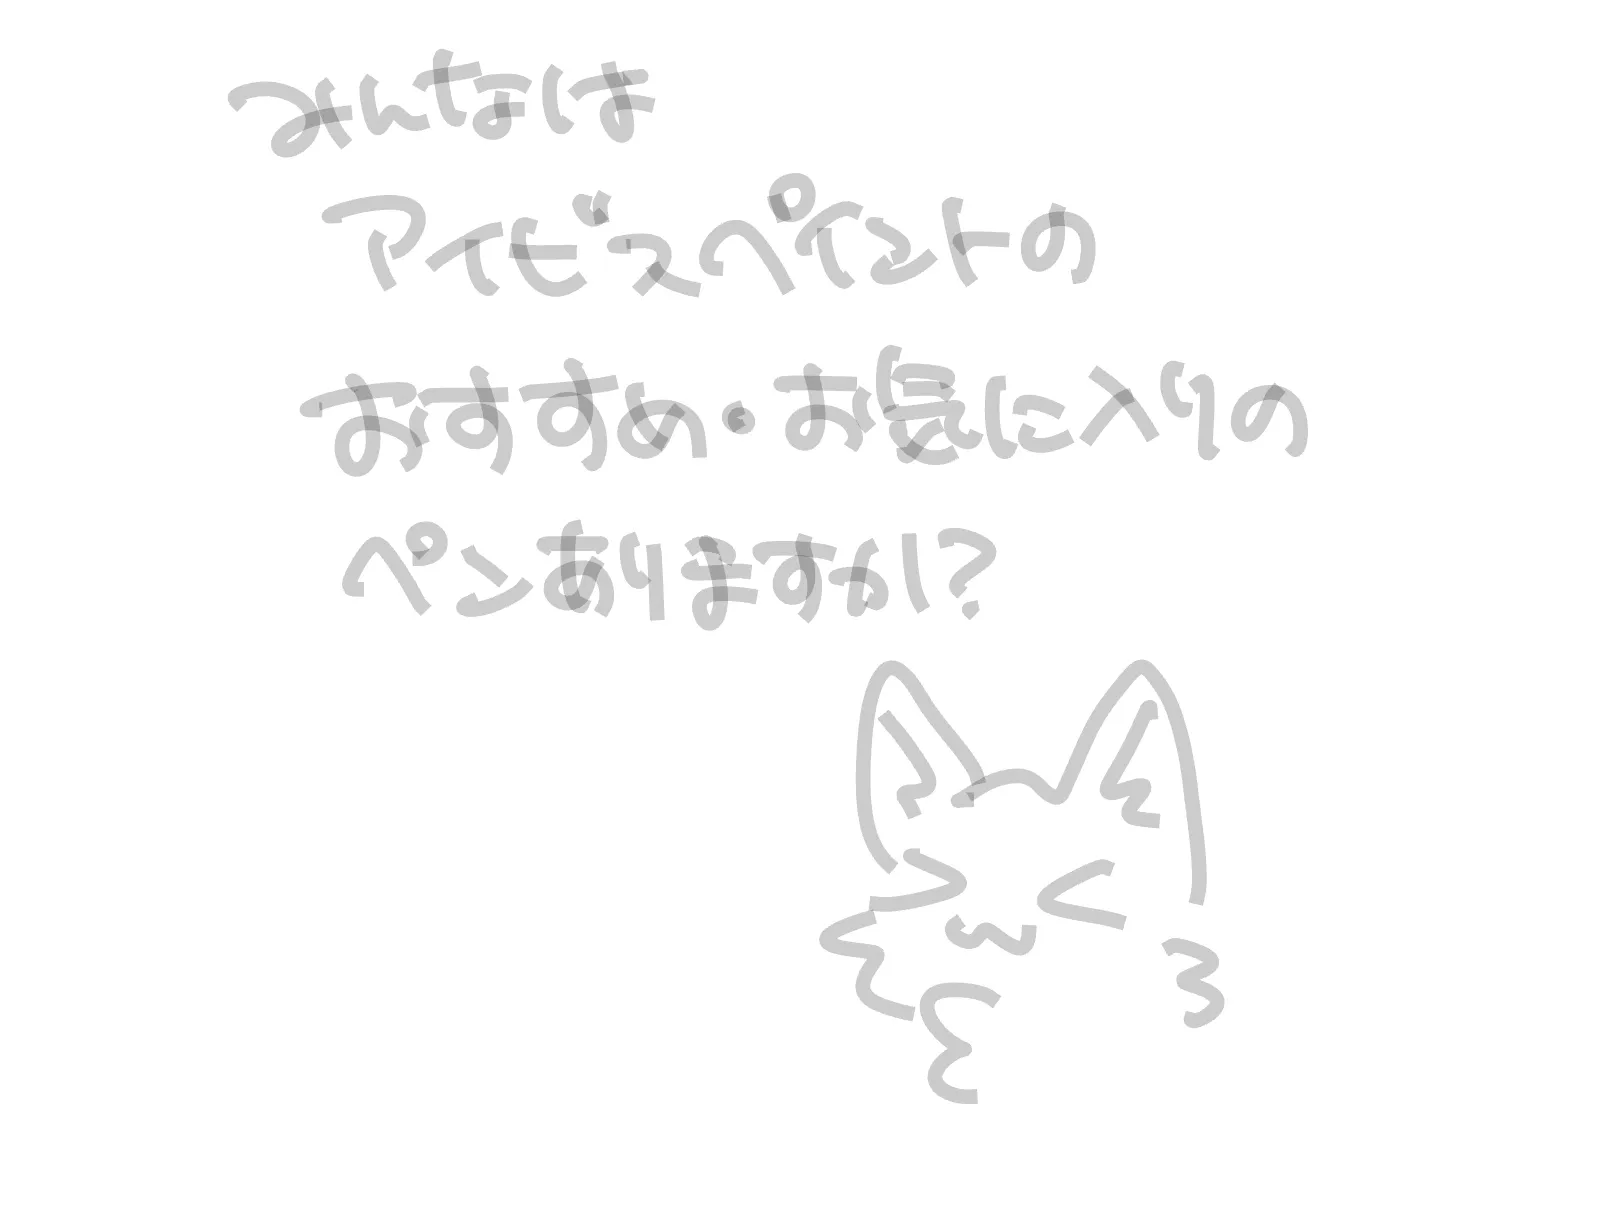 みんなは
アイビスペイントの
おすすめ・お気に入りの
ペンありますか!?